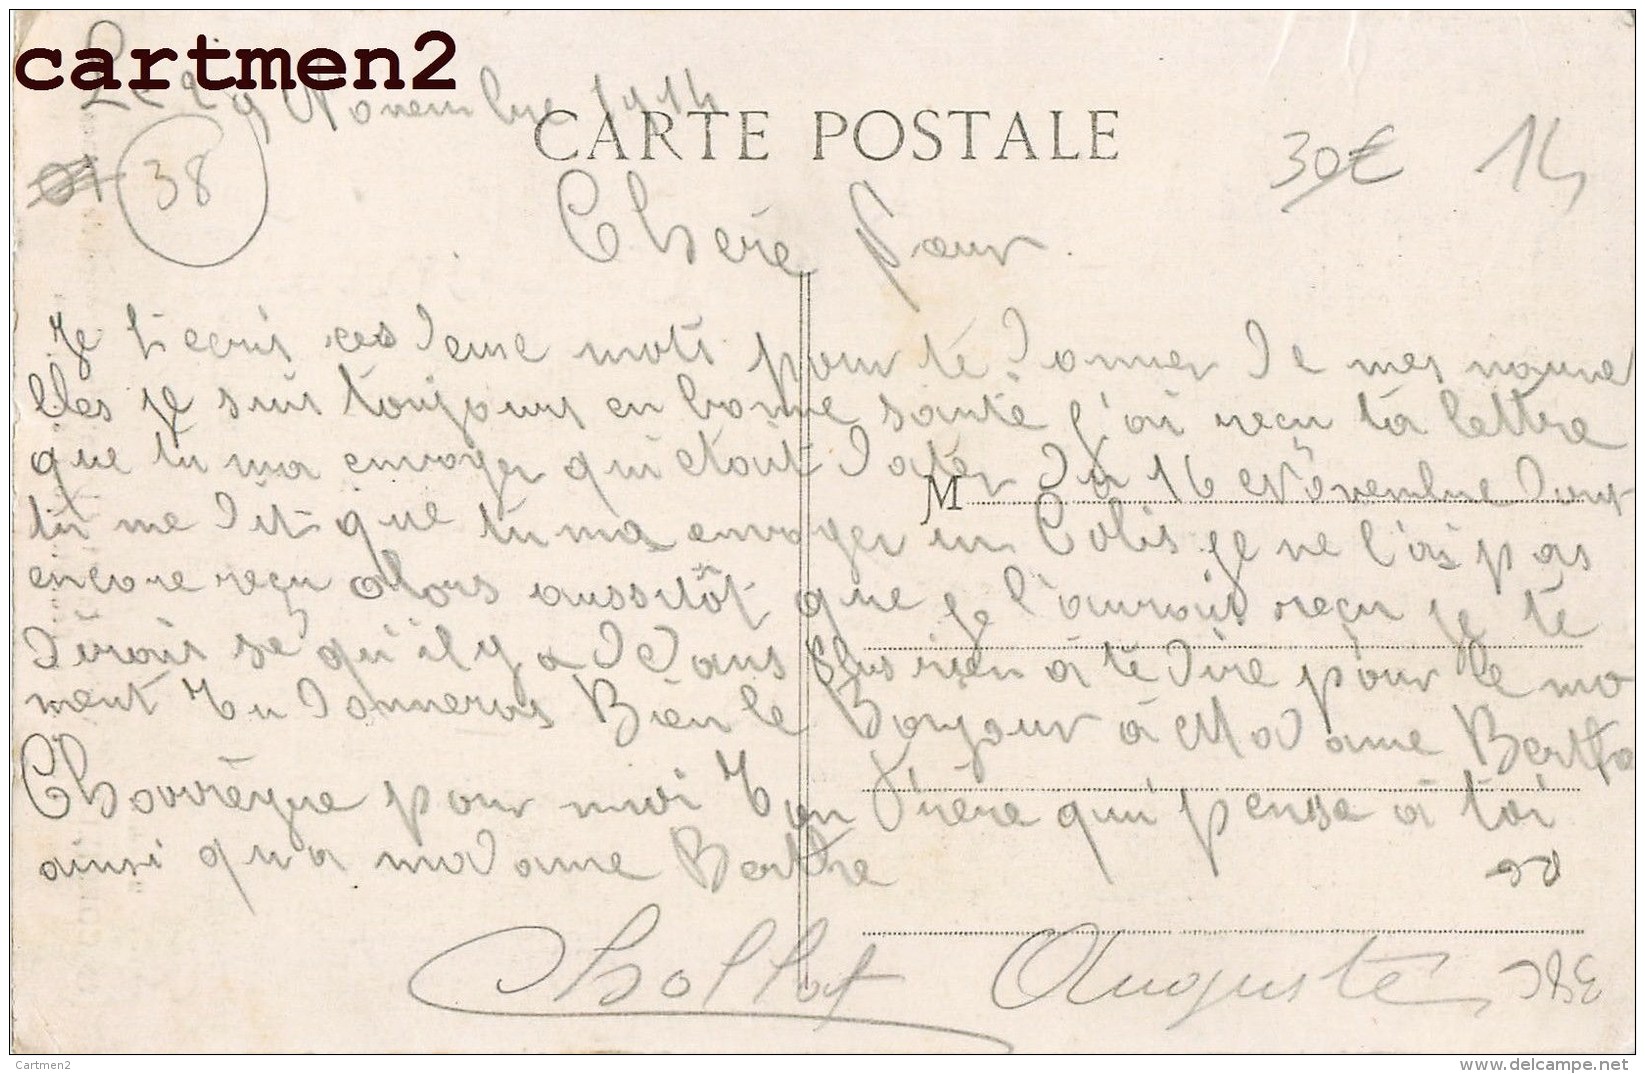 cartmen2
Le 29 Novembre 1914
CARTE POSTALE
38
30€ 14
Chère Sœur
Je t'ecris ces deux mots pour te donner de mes nouve
lles je suis toujours en bonne santé j'ai reçu ta lettre
que tu ma envoyer qui etait dater du 16 Novembre dont
M
tu me dit que tu ma envoyer un Colis je ne l'ai pas
encore reçu alors aussitôt que je l'aurais reçu je te
dirais se qu'il y a dedans plus rien à te dire pour le mo
ment Tu donneras Bien le Bonjour à Madame Berthe
Charrègue pour moi Ton Frère qui pense à toi
ainsi qu'a madame Berthe
Chollat Auguste
Cartmen2
www.delcampe.net